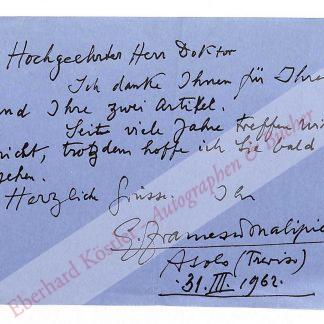 Hochgeehrter Herr Doktor
Ich danke Ihnen für Ihre
und Ihre zwei Artikel.
Seit viele Jahre treffen wir
nicht, trotzdem hoffe ich Sie bald
sehen.
Herzlich Grüsse. Ihr
G. Francesco Malipie
Asolo (Treviso)
31. III. 1962.
Eberhard Köstler, Autographen & Bücher